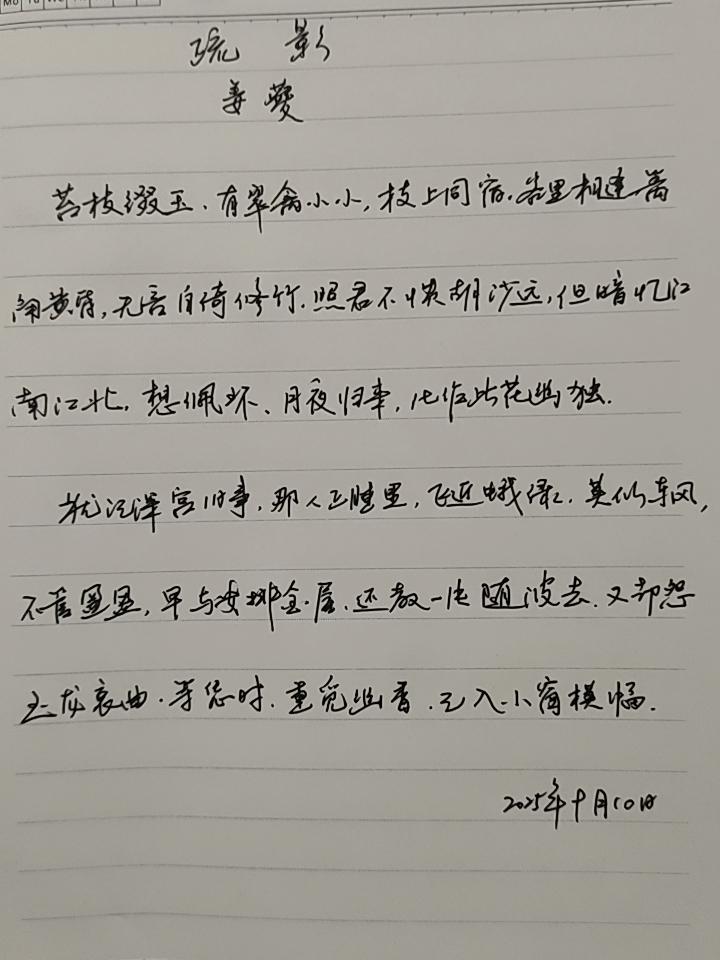 疏影
姜夔
苔枝缀玉、有翠禽小小,枝上同宿.客里相逢篱
角黄昏,无言自倚修竹.照君不惯胡沙远,但暗忆江
南江北.想佩环、月夜归来,化作此花幽独.
犹记深宫旧事,那人正睡里,飞近蛾绿.莫似东风,
不管盈盈,早与安排金屋.还教一片随波去.又却怨
玉龙哀曲.等恁时.重觅幽香.已入小窗横幅.
2025年十月10日